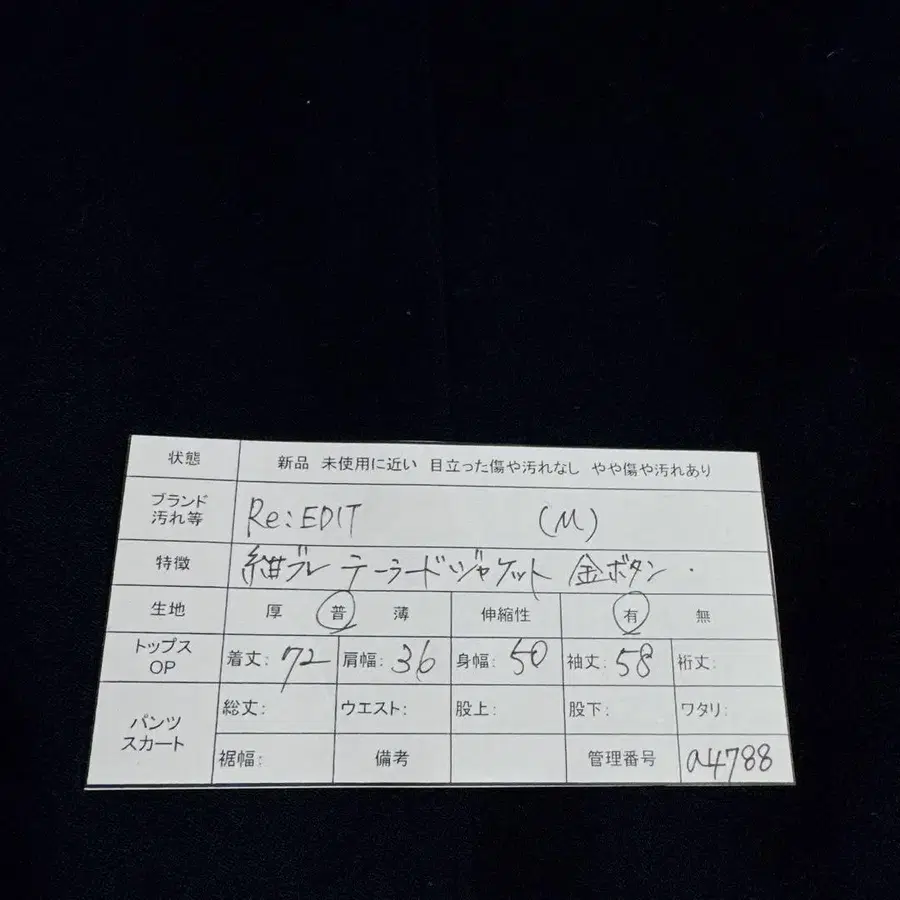 状態 新品 未使用に近い 目立った傷や汚れなし やや傷や汚れあり
ブランド
汚れ等 Re:EDIT (M)
特徴 紺ブレ テーラードジャケット 金ボタン
生地 厚 普 薄 伸縮性 有 無
トップス
OP 着丈: 72 肩幅: 36 身幅: 50 袖丈: 58 裄丈:
パンツ
スカート 総丈: ウエスト: 股上: 股下: ワタリ:
裾幅: 備考 管理番号 a4788